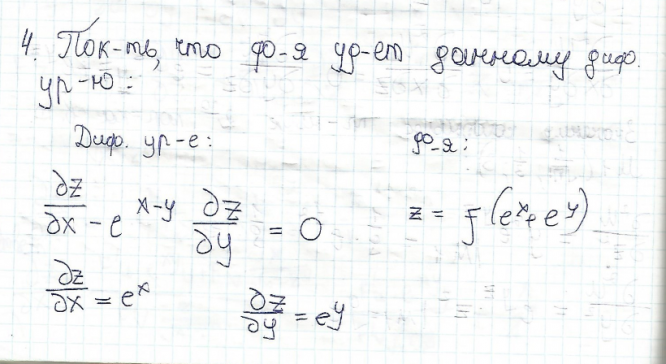 4. Пок-ть, что ф-я уд-ет данному диф.
ур-ю:
Диф. ур-е: ф-я:
∂z/∂x - e^(x-y) ∂z/∂y = 0 z = f(e^x + e^y)
∂z/∂x = e^x ∂z/∂y = e^y